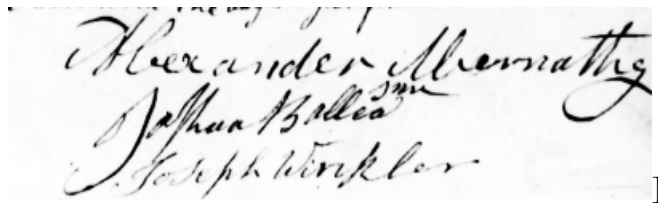 Alexander Abernathy
Joshua Ballea
Joseph Winkler
]